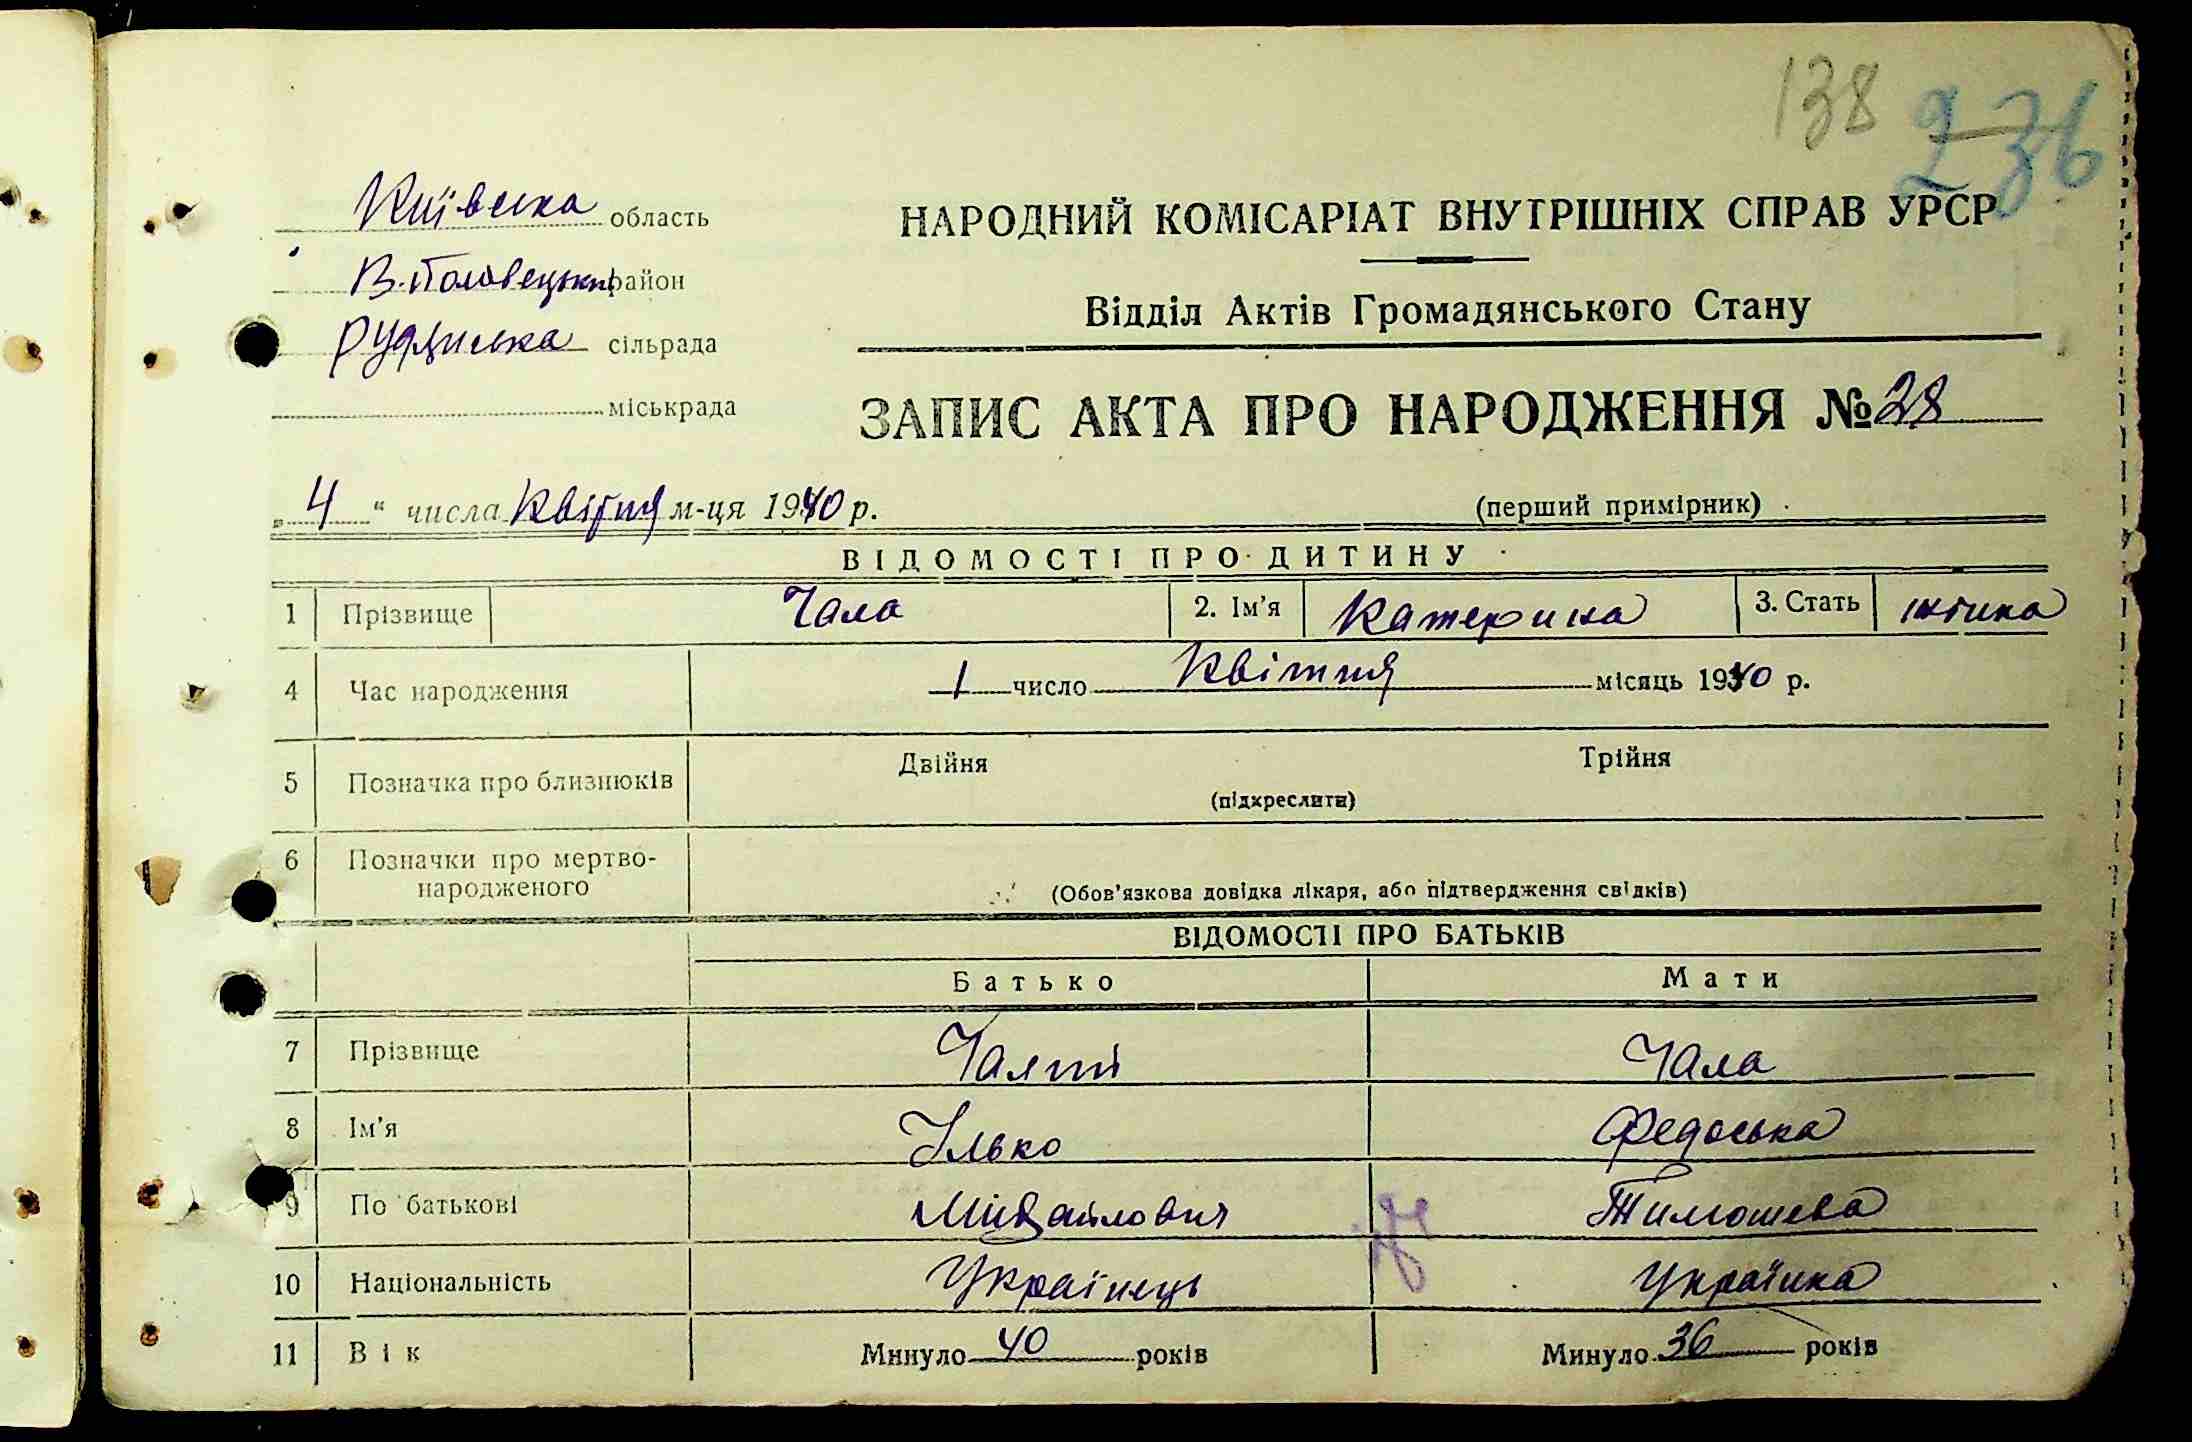 138 236
Київська область
НАРОДНИЙ КОМІСАРІАТ ВНУТРІШНІХ СПРАВ УРСР
В.Половецький район
Відділ Актів Громадянського Стану
Рудиська сільрада
міськрада
ЗАПИС АКТА ПРО НАРОДЖЕННЯ № 28
„4“ числа Квітня м-ця 1940 р. (перший примірник)
ВІДОМОСТІ ПРО ДИТИНУ
1 Прізвище Чала 2. Ім'я Катерина 3. Стать жіноча
4 Час народження 1 число Квітня місяць 1940 р.
5 Позначка про близнюків Двійня Трійня
(підкреслити)
6 Позначки про мертво-
народженого (Обов'язкова довідка лікаря, або підтвердження свідків)
ВІДОМОСТІ ПРО БАТЬКІВ
Батько Мати
7 Прізвище Чалий Чала
8 Ім'я Ілько Федоська
9 По батькові Михайлович Тимошева
10 Національність Українець Українка
11 Вік Минуло 40 років Минуло 36 років